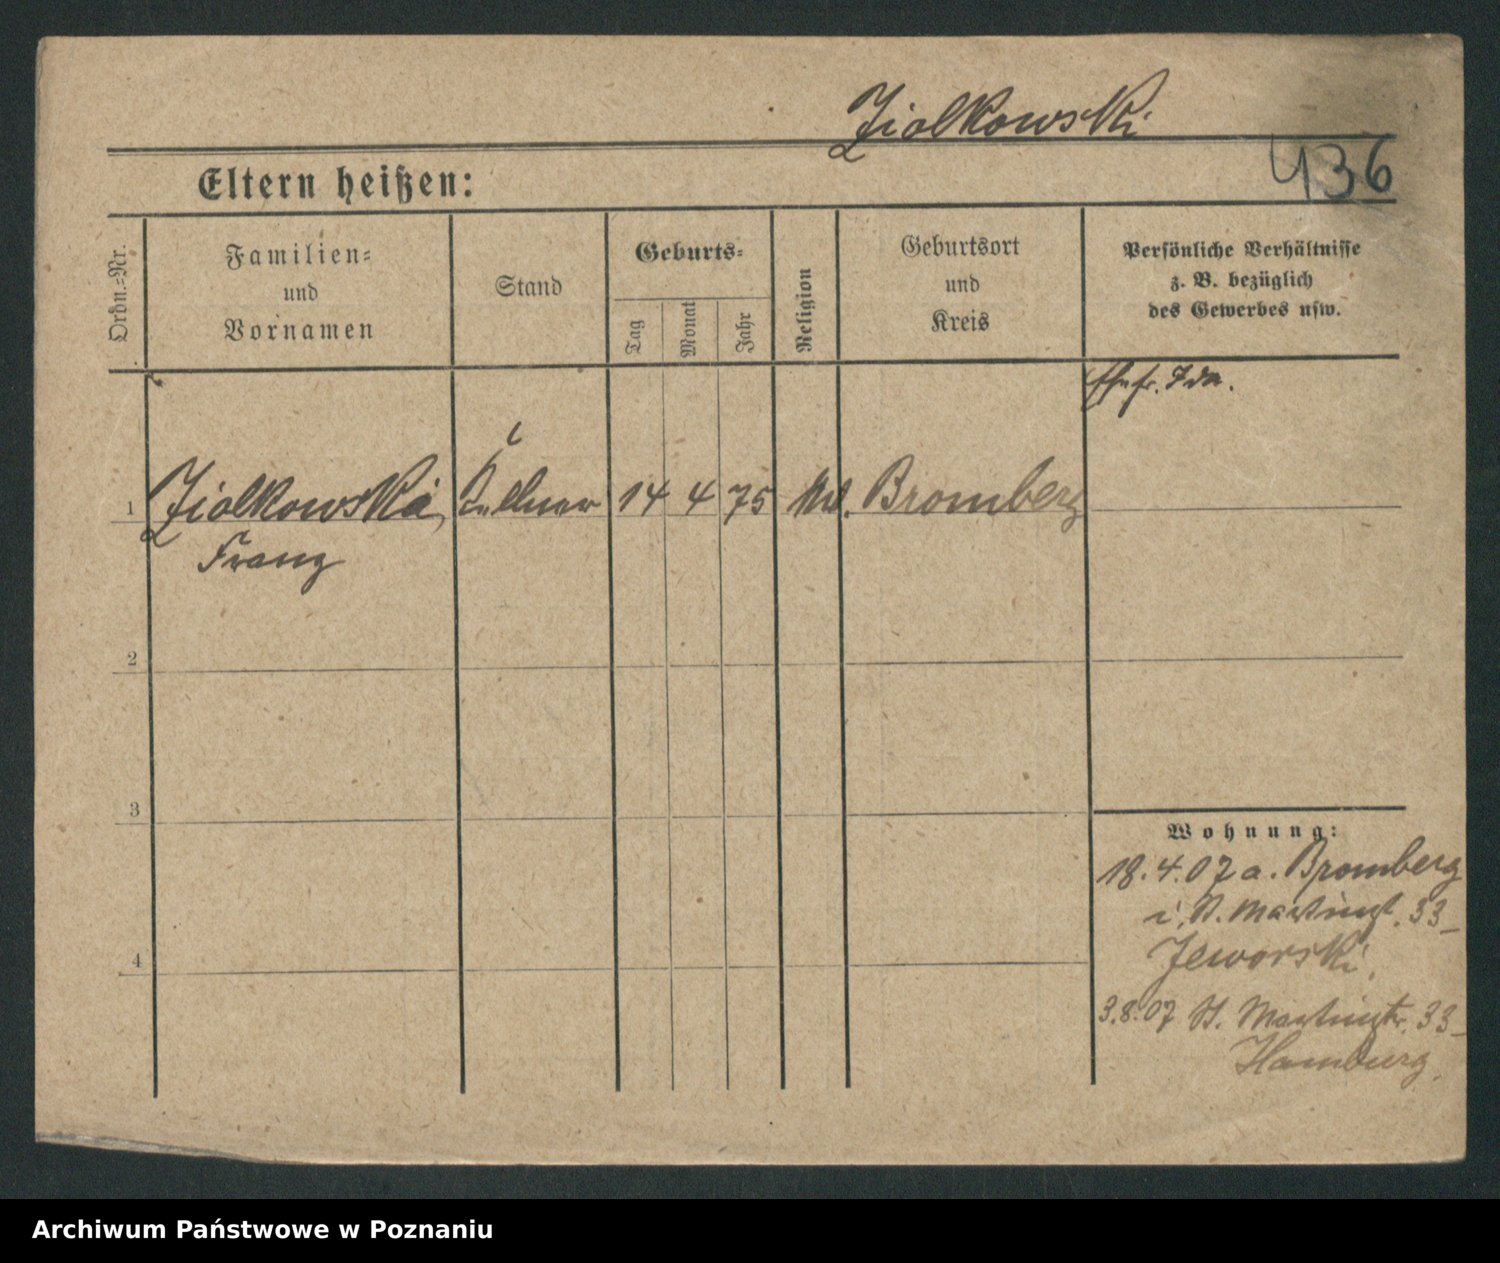 Ziolkowski
436
Eltern heißen:
Ordn.=Nr.
Familien=
und
Vornamen
Stand
Geburts=
Tag
Monat
Jahr
Religion
Geburtsort
und
Kreis
Persönliche Verhältnisse
z. B. bezüglich
des Gewerbes usw.
Ehefr. Ida.
1
Ziolkowski, Kellner 14 4 75 Bromberg
Franz
2
3
4
Wohnung:
18.4.07 a. Bromberg
i. St. Martinstr. 33
Jeworski.
3.8.07 St. Martinstr. 33
Hamburg.
Archiwum Państwowe w Poznaniu